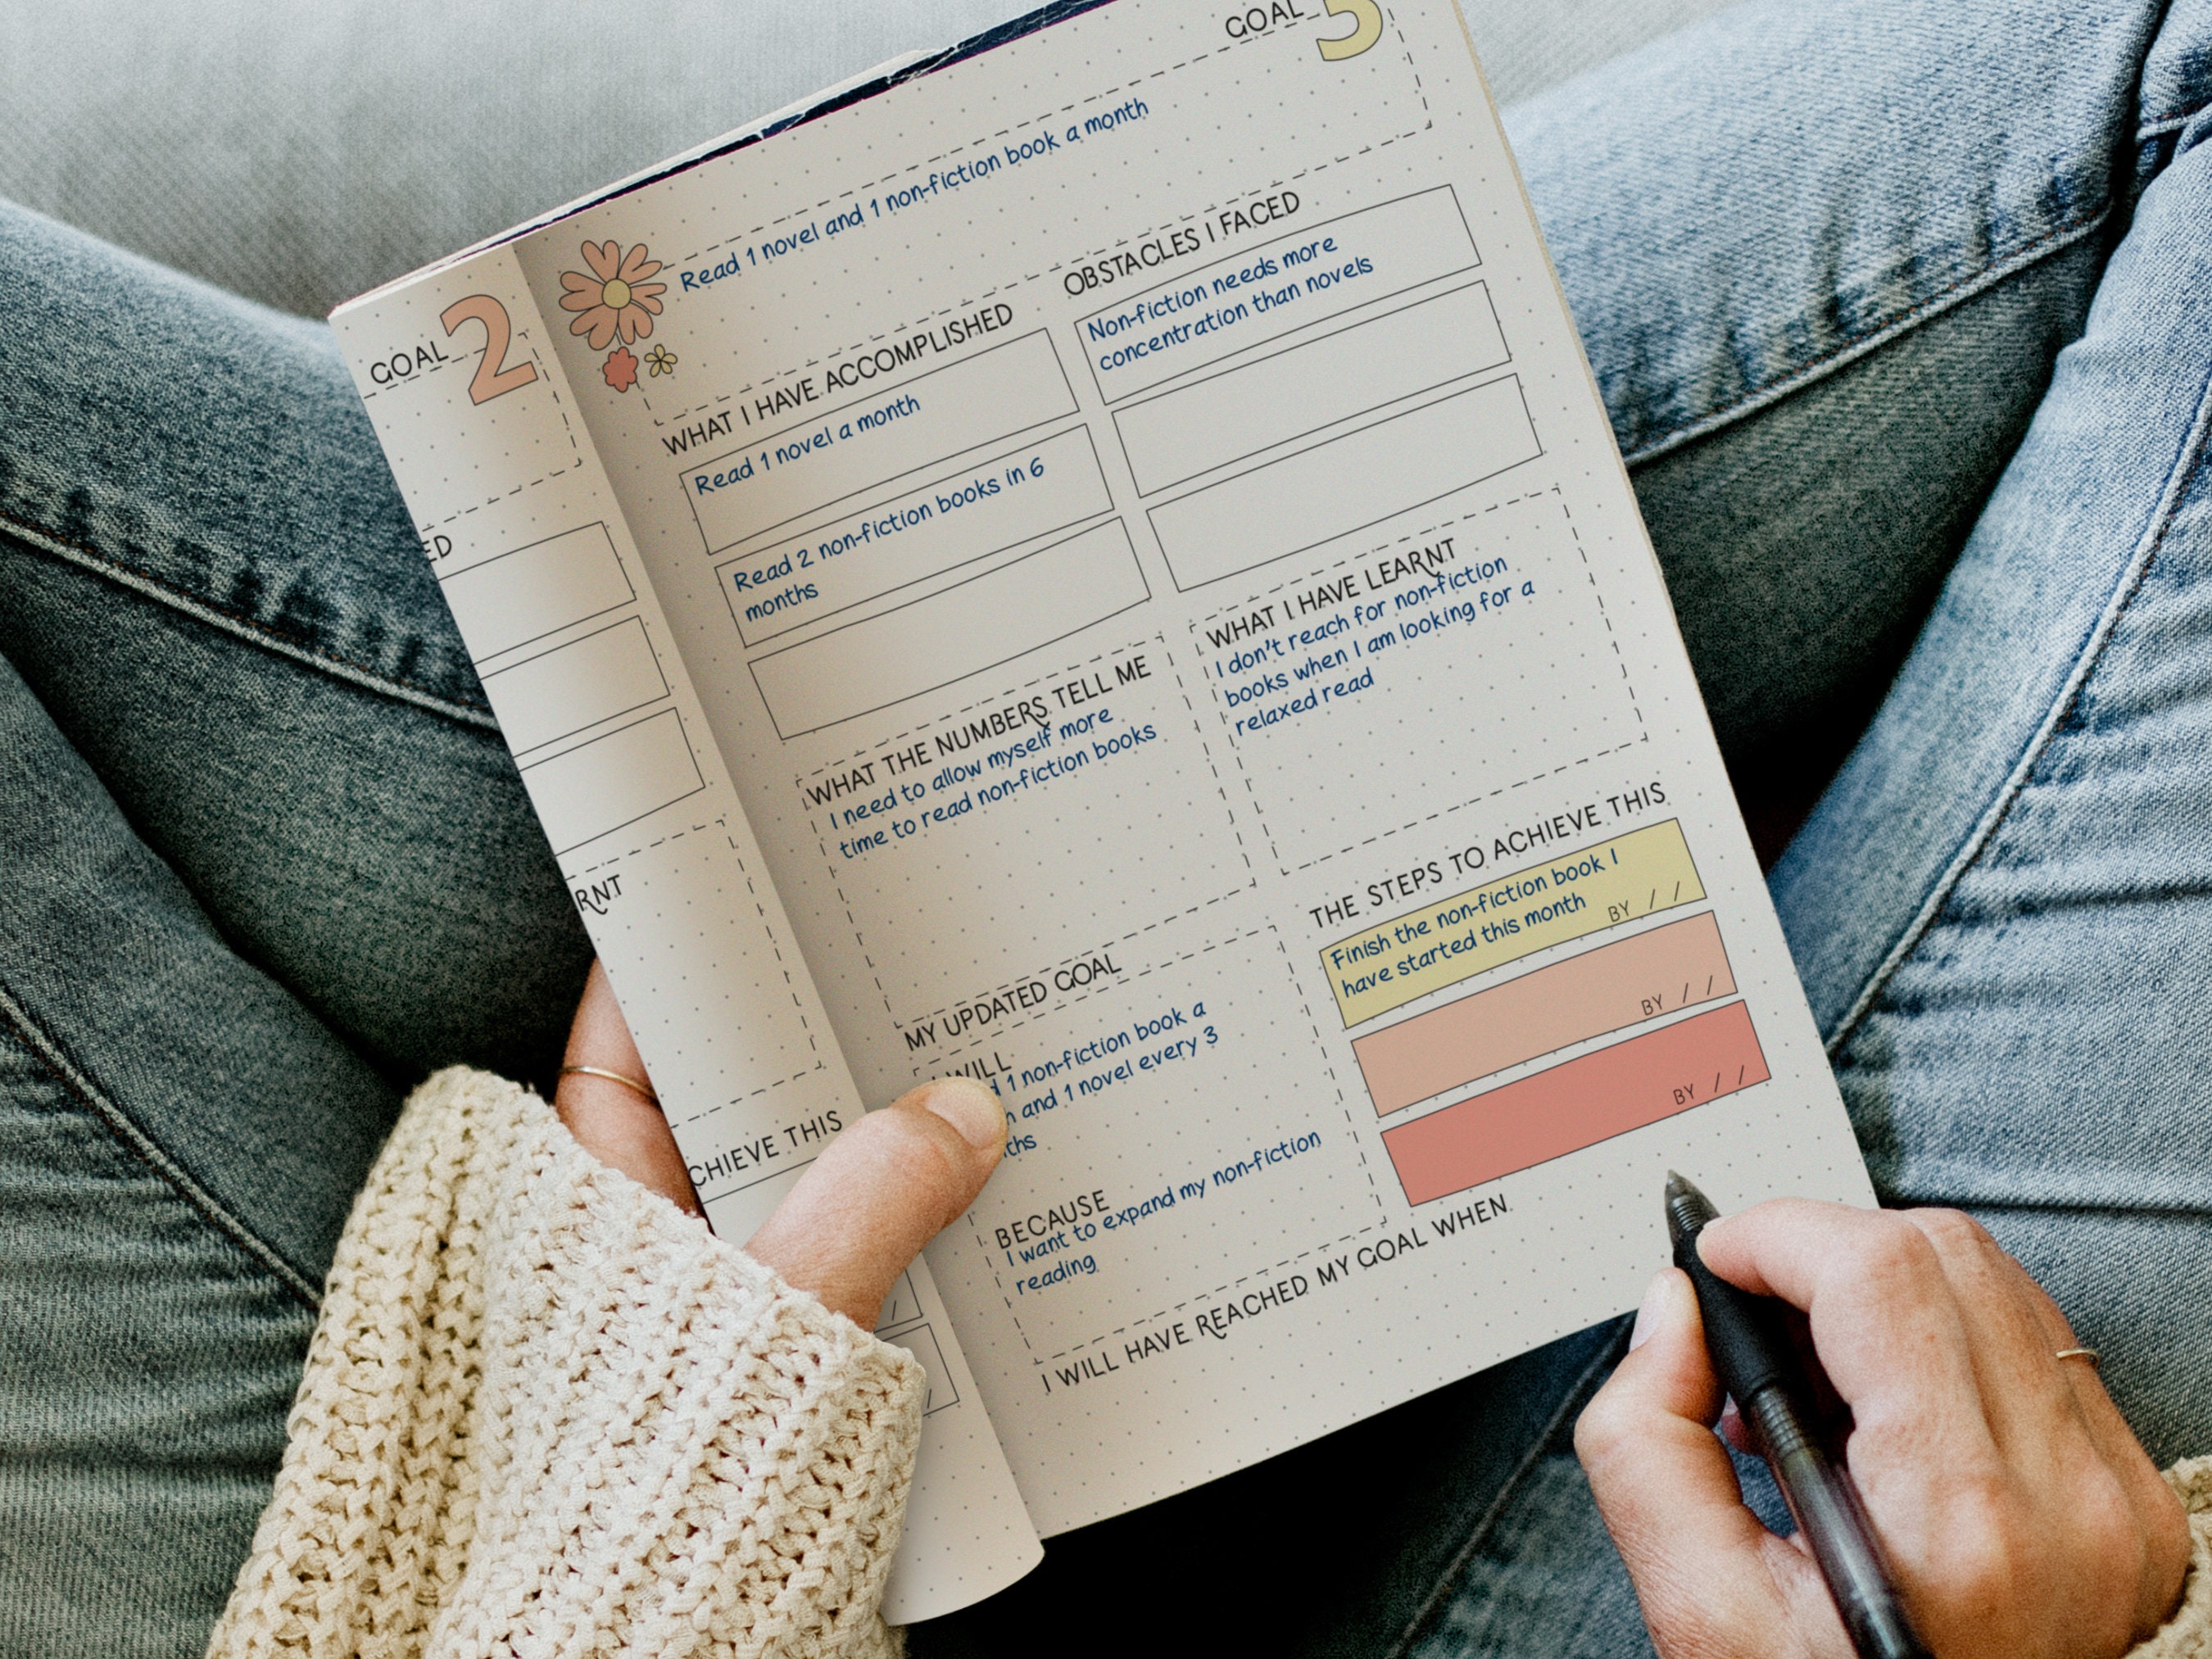 GOAL 2
ED
RNT
CHIEVE THIS
/
/
GOAL
Read 1 novel and 1 non-fiction book a month
WHAT I HAVE ACCOMPLISHED
Read 1 novel a month
Read 2 non-fiction books in 6
months
OBSTACLES I FACED
Non-fiction needs more
concentration than novels
WHAT THE NUMBERS TELL ME
I need to allow myself more
time to read non-fiction books
WHAT I HAVE LEARNT
I don't reach for non-fiction
books when I am looking for a
relaxed read
MY UPDATED GOAL
WILL
1 non-fiction book a
and 1 novel every 3
BECAUSE
I want to expand my non-fiction
reading
THE STEPS TO ACHIEVE THIS
Finish the non-fiction book I
have started this month
BY / /
BY / /
BY / /
I WILL HAVE REACHED MY GOAL WHEN